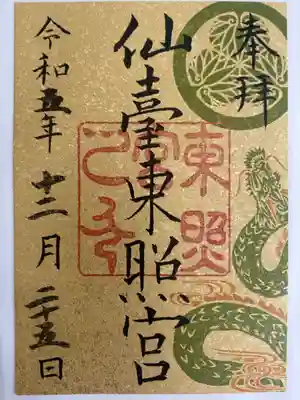 奉拝
仙臺東照宮
東照
宮
令和五年十二月二十五日